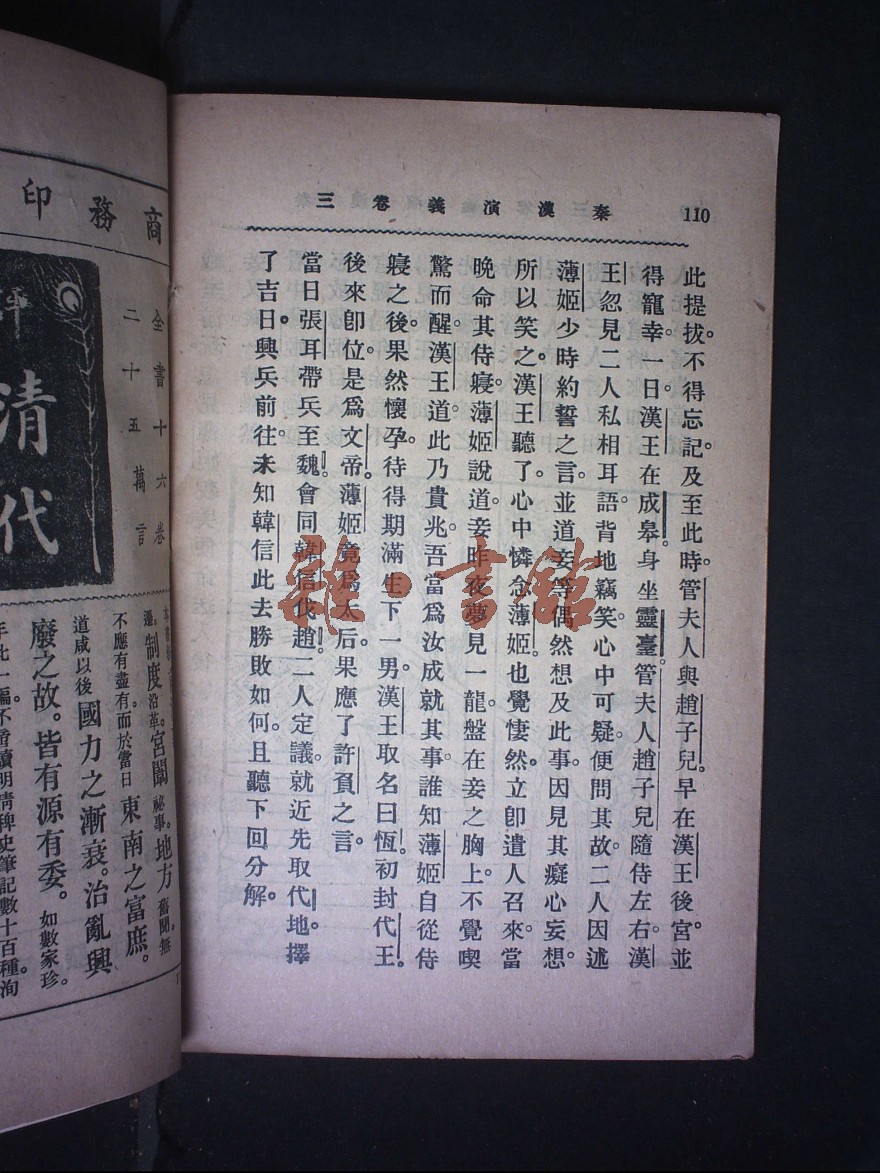 110
秦漢演義卷三
此提拔。不得忘記。及至此時。管夫人與趙子兒。早在漢王後宮。並
得寵幸。一日漢王在成皋。身坐靈臺。管夫人趙子兒隨侍左右。漢
王忽見二人私相耳語。背地竊笑。心中可疑。便問其故。二人因述
薄姬少時約誓之言。並道妾等偶然想及此事。因見其癡心妄想。
所以笑之。漢王聽了。心中憐念薄姬。也覺悽然。立卽遣人召來。當
晚命其侍寢。薄姬說道。妾昨夜夢見一龍盤在妾之胸上。不覺喫
驚而醒。漢王道。此乃貴兆。吾當爲汝成就其事。誰知薄姬自從侍
寢之後。果然懷孕。待得期滿生下一男。漢王取名曰恆。初封代王。
後來卽位。是爲文帝。薄姬竟爲太后。果應了許負之言。
當日張耳帶兵至魏。會同韓信伐趙。二人定議。就近先取代地。擇
了吉日。興兵前往。未知韓信此去勝敗如何。且聽下回分解。
雜·書館
商務印
清代
全書十六卷
二十五萬言
制度沿革。宮闈祕事。地方舊聞。無
不應有盡有。而於當日東南之富庶。
道咸以後國力之漸衰。治亂興
廢之故。皆有源有委。如數家珍。
年此一編。不重讀明清稗史筆記數十百種。洵